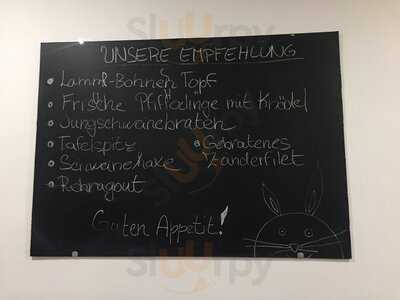 UNSERE EMPFEHLUNG
• Lamm-Bohnen Topf
• Frische Pfifferlinge mit Knödel
• Jungschweinebraten
• Tafelspitz • Gebratenes
• Schweinehaxe Zanderfilet
• Rehragout
Guten Appetit!
sluurpy
sluurpy